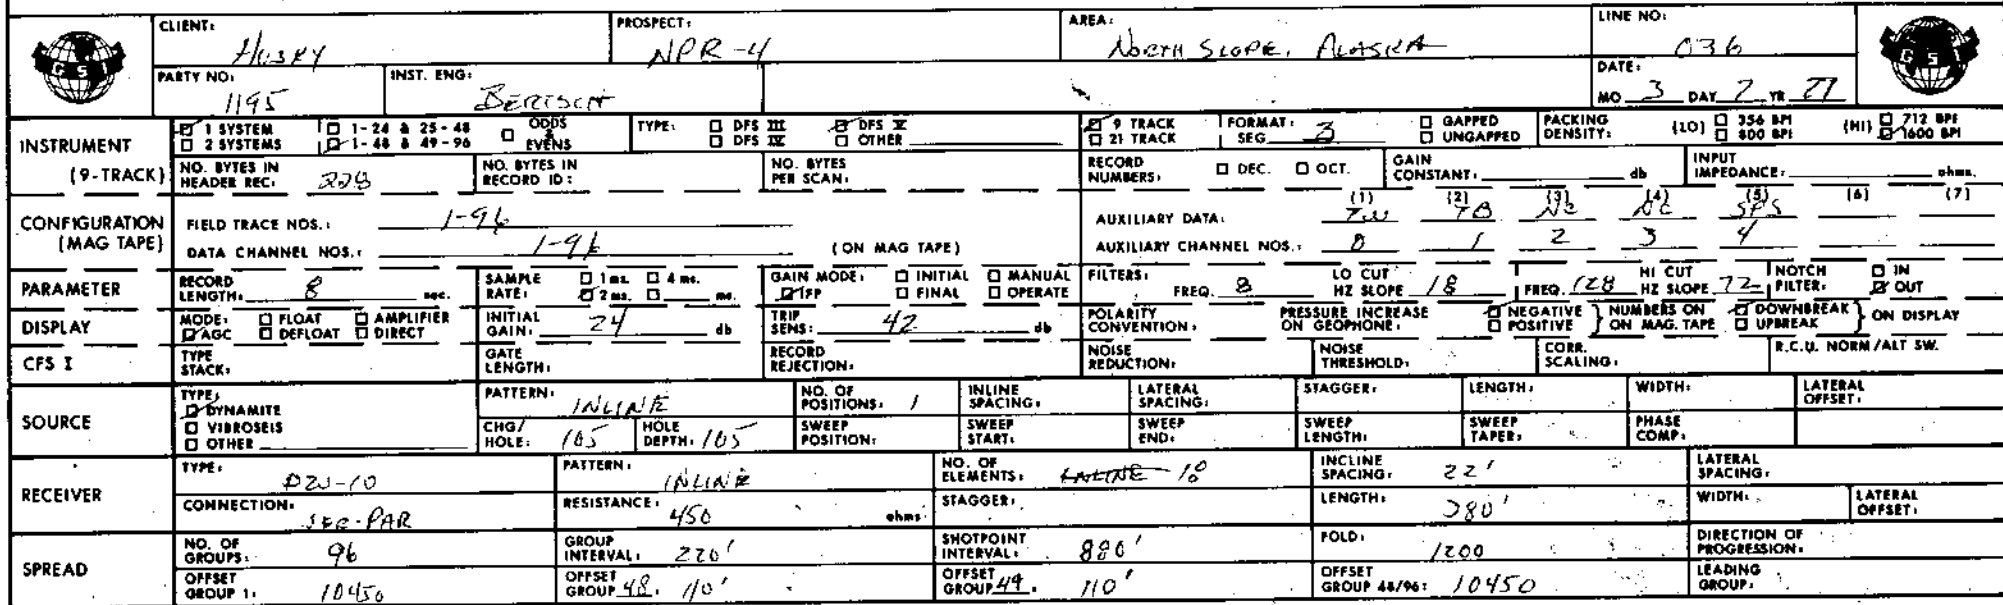 CLIENT: Husky PROSPECT: NPR-4 AREA: North Slope, Alaska LINE NO: 036
GSI
PARTY NO: 1195 INST. ENG: Bertsch DATE: MO 3 DAY 2 YR 77
GSI
INSTRUMENT (9-TRACK)
☑ 1 SYSTEM ☐ 1-24 & 25-48 ☐ ODDS & EVENS TYPE: ☐ DFS III ☑ DFS V ☑ 9 TRACK FORMAT: ☐ GAPPED PACKING DENSITY: (LO) ☐ 356 BPI (HI) ☐ 712 BPI
☐ 2 SYSTEMS ☑ 1-48 & 49-96 ☐ DFS IV ☐ OTHER ☐ 21 TRACK SEG 3 ☐ UNGAPPED ☐ 800 BPI ☑ 1600 BPI
NO. BYTES IN HEADER REC: 228 NO. BYTES IN RECORD ID: NO. BYTES PER SCAN: RECORD NUMBERS: ☐ DEC. ☐ OCT. GAIN CONSTANT: db INPUT IMPEDANCE: ohms.
CONFIGURATION (MAG TAPE)
FIELD TRACE NOS.: 1-96 AUXILIARY DATA: (1) TW (2) TB (3) NC (4) NC (5) SPS (6) (7)
DATA CHANNEL NOS.: 1-96 (ON MAG TAPE) AUXILIARY CHANNEL NOS.: 0 1 2 3 4
PARAMETER RECORD LENGTH: 8 sec. SAMPLE RATE: ☐ 1 ms. ☐ 4 ms. ☑ 2 ms. ☐ ms. GAIN MODE: ☑ IFP ☐ INITIAL ☐ FINAL ☐ MANUAL ☐ OPERATE FILTERS: FREQ. 8 LO CUT HZ SLOPE 18 FREQ. 128 HI CUT HZ SLOPE 72 NOTCH FILTER: ☐ IN ☑ OUT
DISPLAY MODE: ☑ AGC ☐ FLOAT ☐ DEFLOAT ☐ AMPLIFIER ☐ DIRECT INITIAL GAIN: 24 db TRIP SENS: 42 db POLARITY CONVENTION: PRESSURE INCREASE ON GEOPHONE: ☑ NEGATIVE ☐ POSITIVE } NUMBERS ON ON MAG. TAPE ☑ DOWNBREAK ☐ UPBREAK } ON DISPLAY
CFS I TYPE STACK: GATE LENGTH: RECORD REJECTION: NOISE REDUCTION: NOISE THRESHOLD: CORR. SCALING: R.C.U. NORM/ALT SW.
SOURCE TYPE: ☑ DYNAMITE ☐ VIBROSEIS ☐ OTHER
PATTERN: INLINE NO. OF POSITIONS: 1 INLINE SPACING: LATERAL SPACING: STAGGER: LENGTH: WIDTH: LATERAL OFFSET:
CHG/HOLE: 105 HOLE DEPTH: 105 SWEEP POSITION: SWEEP START: SWEEP END: SWEEP LENGTH: SWEEP TAPER: PHASE COMP:
RECEIVER TYPE: 20-10 PATTERN: INLINE NO. OF ELEMENTS: INLINE 18 INCLINE SPACING: 22' LATERAL SPACING:
CONNECTION: SER-PAR RESISTANCE: 450 ohms STAGGER: LENGTH: 380' WIDTH: LATERAL OFFSET:
SPREAD NO. OF GROUPS: 96 GROUP INTERVAL: 220' SHOTPOINT INTERVAL: 880' FOLD: 1200 DIRECTION OF PROGRESSION:
OFFSET GROUP 1: 10450 OFFSET GROUP 48: 110' OFFSET GROUP 49: 110' OFFSET GROUP 48/96: 10450 LEADING GROUP: